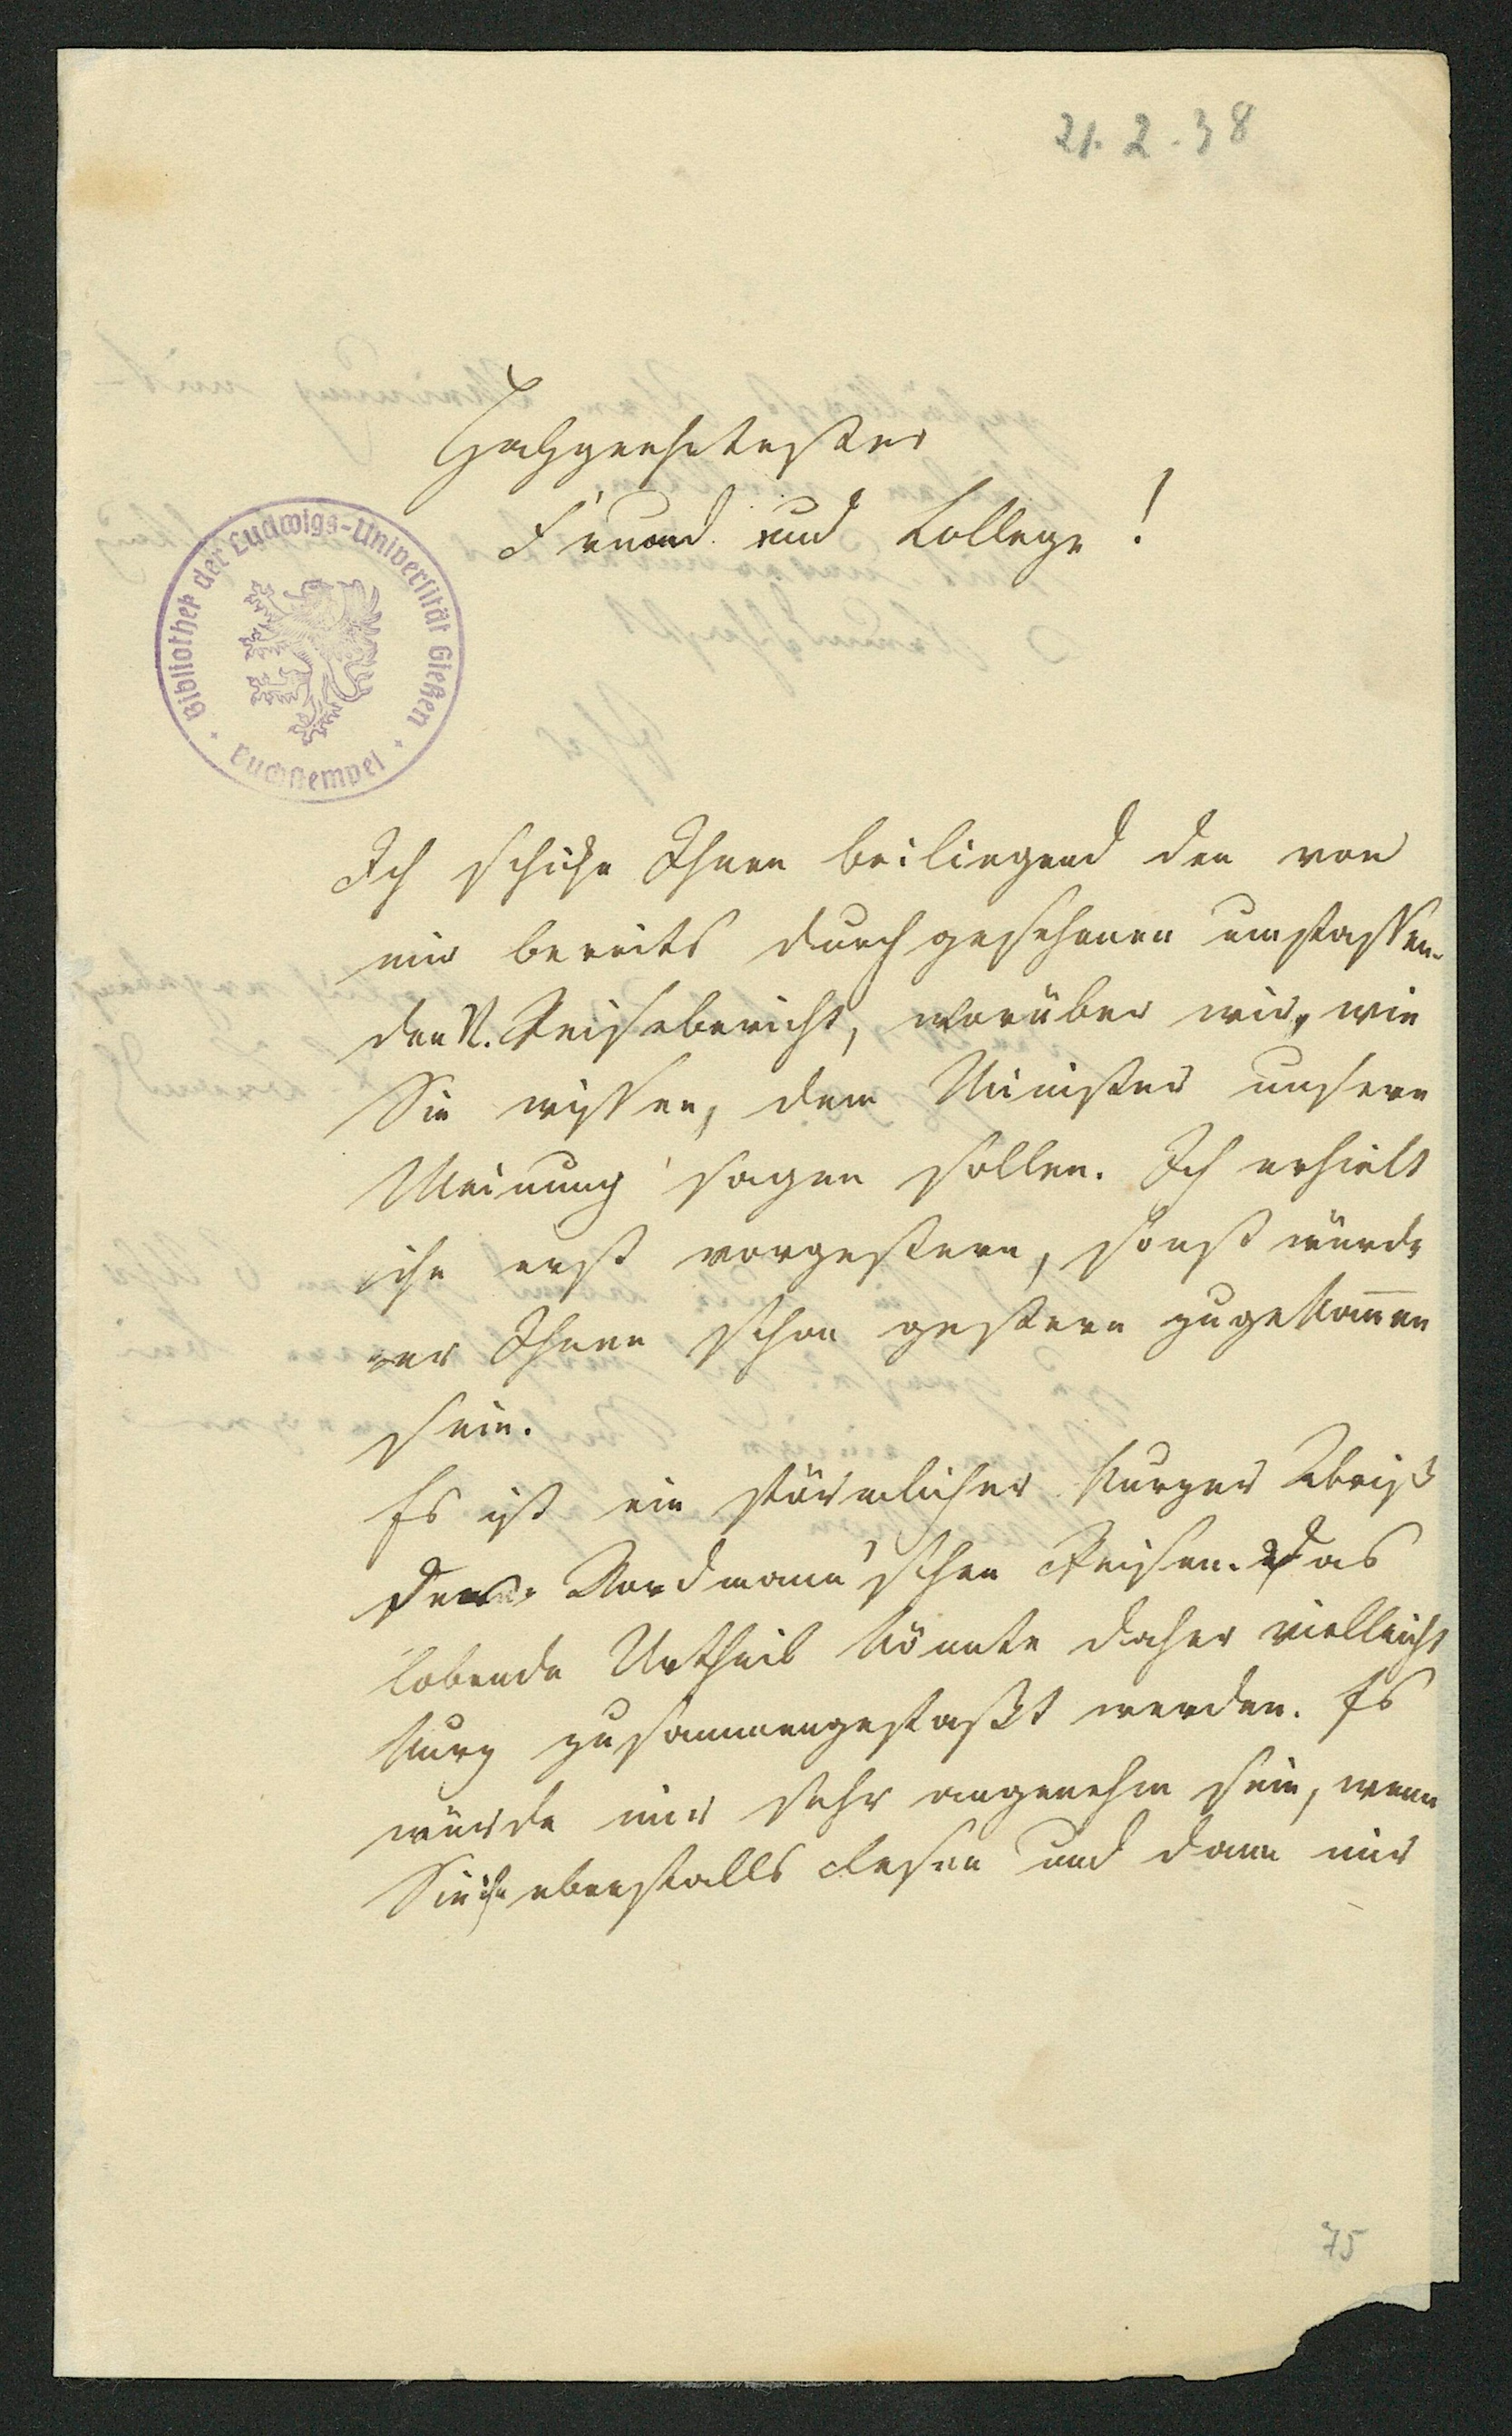 21.2.38
Hochgeehrtester
Freund und College!
Bibliothek der Ludwigs-Universität Gießen
Buchstempel
Ich schicke Ihnen beiliegend den von
mir bereits durchgesehenen umfassen-
den N. Reisebericht, worüber wir, wie
Sie wissen, dem Minister unsere
Meinung sagen sollen. Ich erhielt
ihn erst vorgestern, sonst würde
er Ihnen schon gestern zugekom̄en
sein.
Es ist ein förmlicher kurzer Abriß
der Nordmann'schen Reisen. Das
lobende Urtheil könnte daher vielleicht
kurz zusammengefaßt werden. Es
würde mir sehr angenehm sein, wenn
Sie ihn ebenfalls lesen und dann mir
75